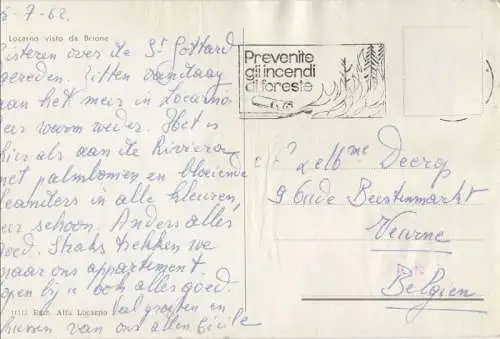 5-7-62
Locarno vista da Brione
Gisteren over de St Gotthard
gereden. Zitten vandaag
aan het meer in Locarno
zeer warm weder. Het is
hier als aan de Riviera
met palmbomen en bloeiende
leanders in alle kleuren,
zeer schoon. Anders alles
goed. Straks trekken we
naar ons appartement.
Hopen bij u ook alles goed.
Veel groeten en
kussen van ons allen Cécile
11113 Ediz. Alfa Locarno
Prevenite
gli incendi
di foreste
Belgien
Deerop
9 Oude Beestenmarkt
Veurne